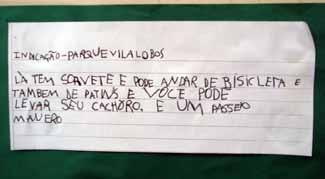 INDICAÇÃO-PARQUE VILALOBOS
LÀ TEM SORVETE E PODE ANDAR DE BISICLETA E
TAMBEM DE PATINS E VOCE PODE
LEVAR SEU CACHORO. E UM PASSEIO
MANERO